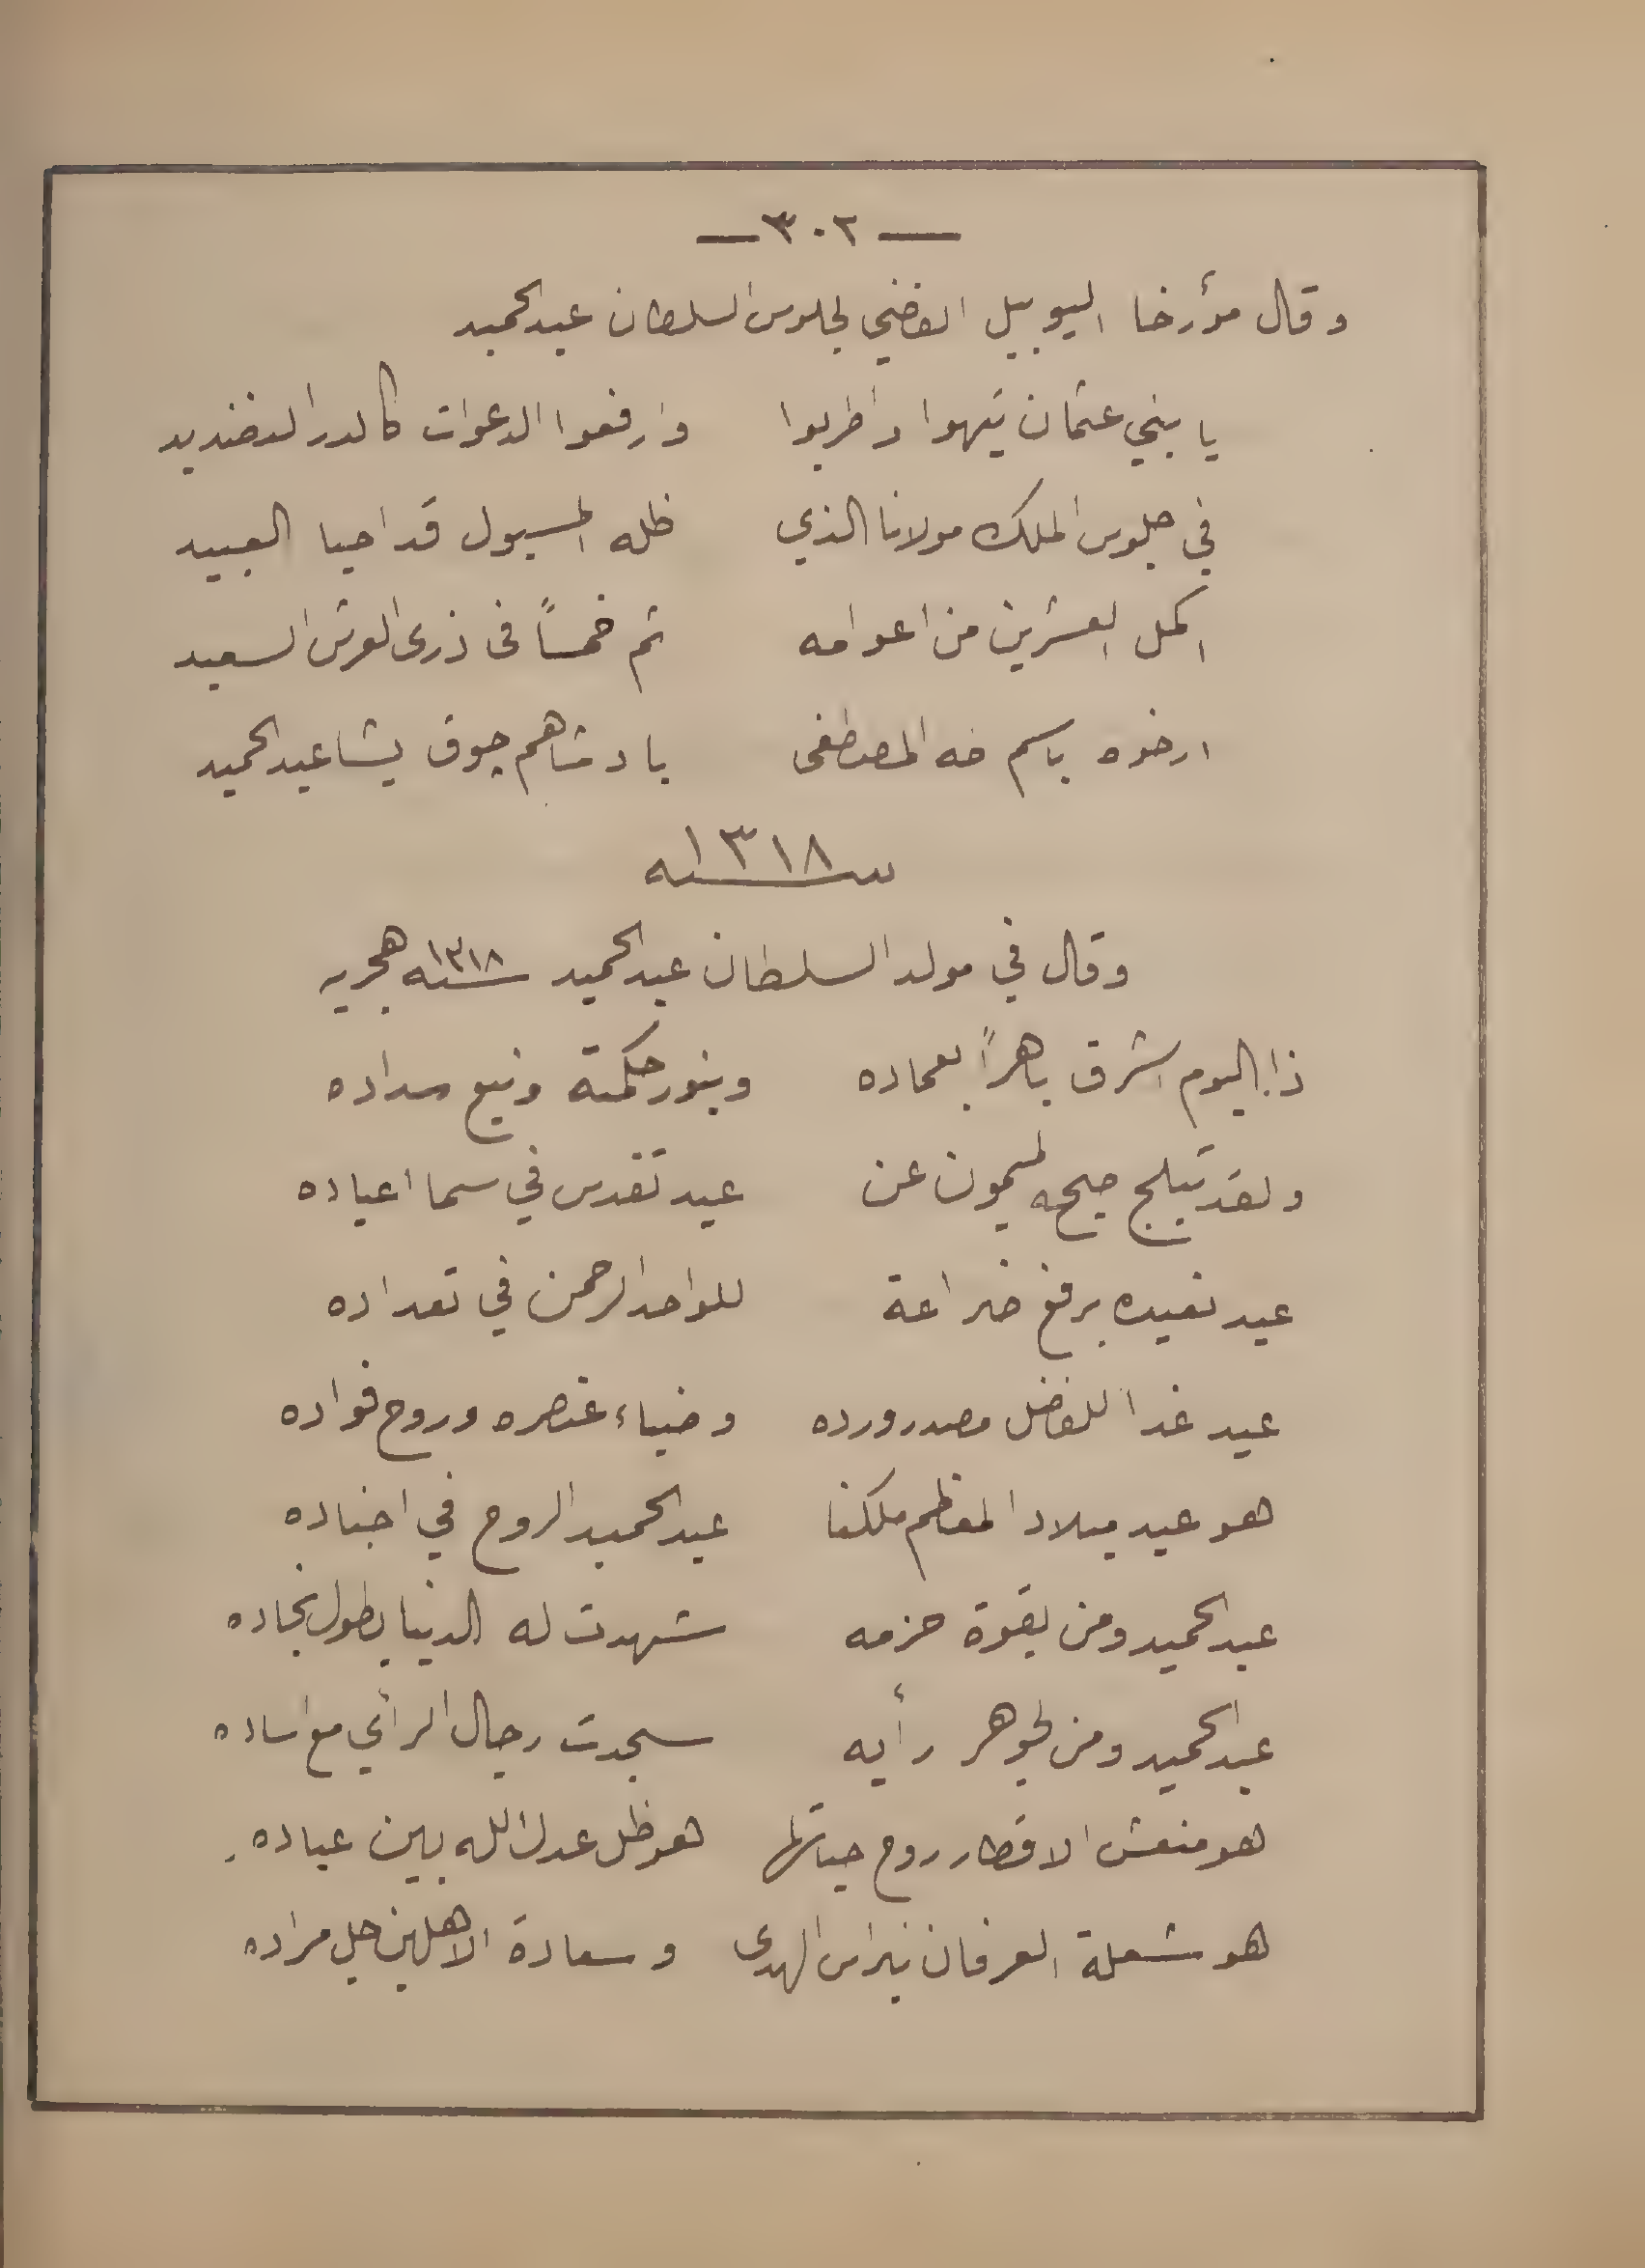 — ٣٠٢ —
وقال مؤرخا اليوبيل الفضي لجلوس السلطان عبدالحميد
يا بني عثمان تيهوا واطربوا وارفعوا الدعوات كالدر النضيد
في جلوس الملك مولانا الذي ظله المسبول قد احيا العبيد
اكمل العشرين من اعوامه ثم خمساً في ذرى العرش السعيد
ارخوه باسم طه المصطفى بادشاهم چوق يشا عبدالحميد
سنه ١٣١٨
وقال في مولد السلطان عبدالحميد سنه ١٣١٨ هجريه
ذا اليوم اشرق باهراً بعماده وبنور حكمته ونبع سداده
ولقد تبلج صبحه الميمون عن عيد تقدس في سما اعياده
عيد نعيده برفع ضراعة للواحد الرحمن في تعداده
عيد غدا للفضل مصدر ورده وضياء عنصره وروح فواده
هو عيد ميلاد المعظم ملكنا عبدالحميد الروح في اجناده
عبدالحميد ومن بقوة حزمه شهدت له الدنيا بطول نجاده
عبدالحميد ومن لجوهر رأيه سجدت رجال الرأي مع اساده
هو منعش الاقطار روح حياتها هو ظل عدل الله بين عباده
هو شعلة العرفان نبراس الهدى وسعادة الاهلين جل مراده